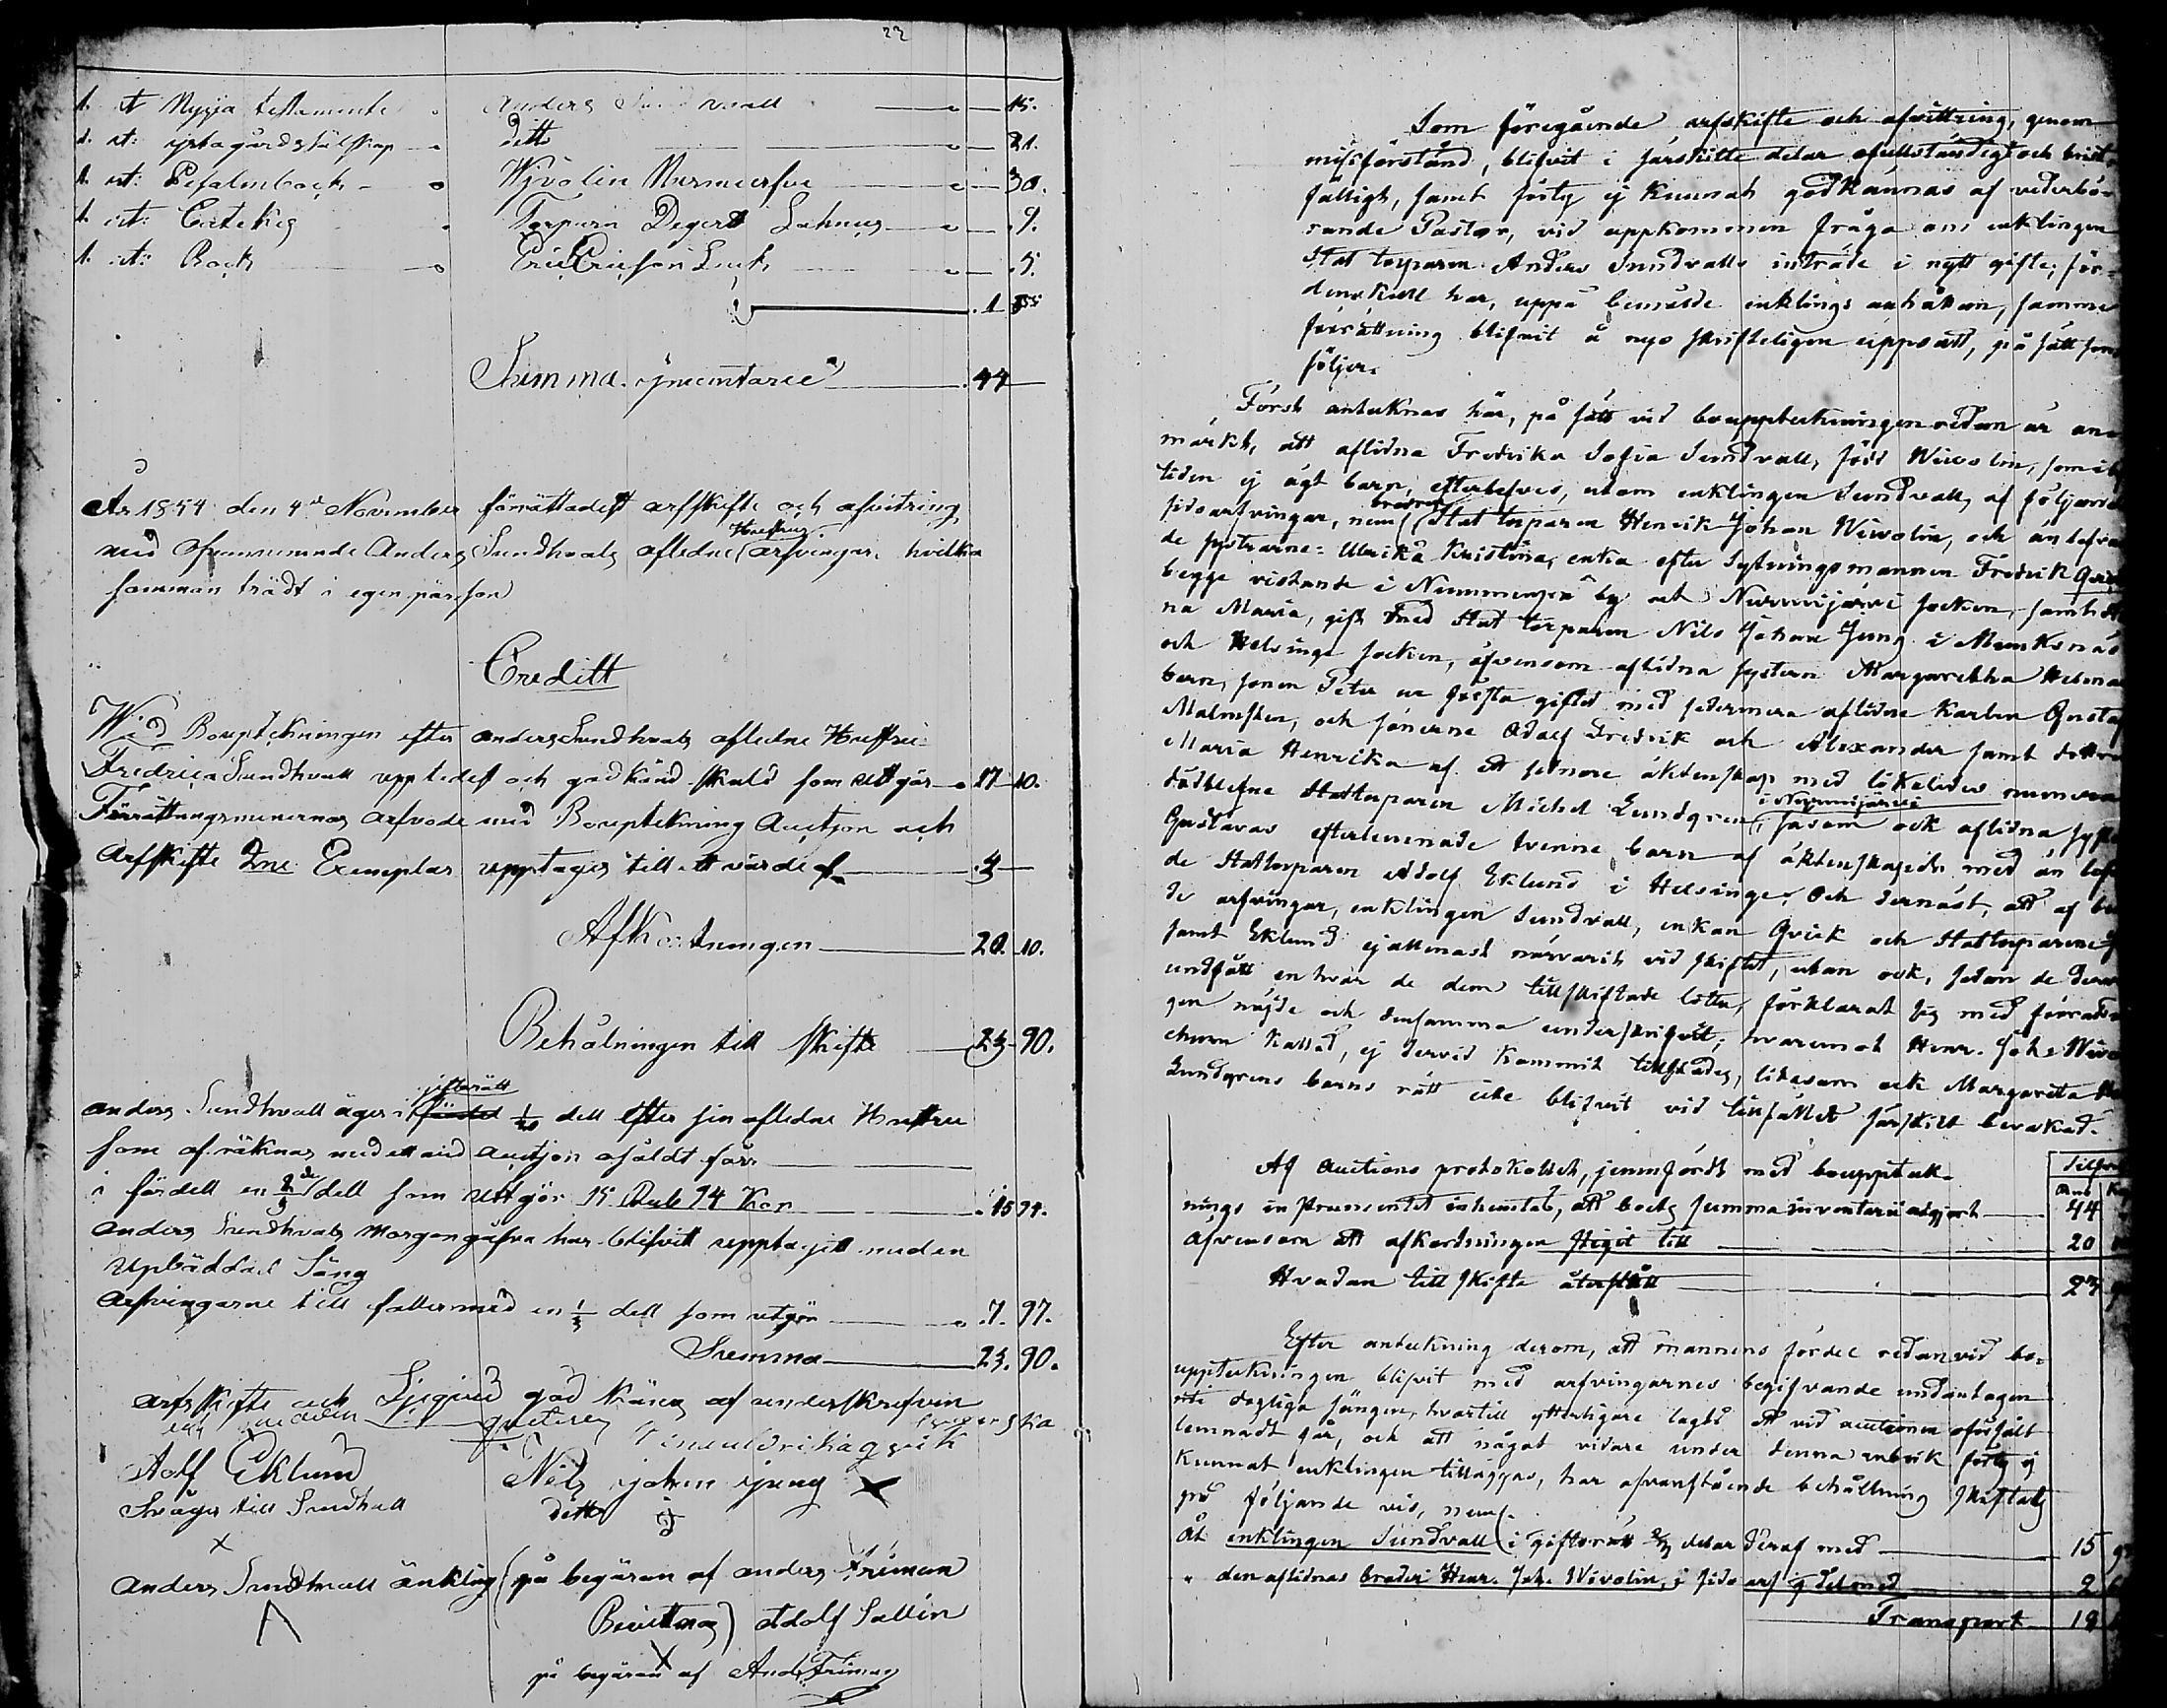 22
1. st Nyija testamente Anders Sundvall 15.
1. st: ditto 21.
1. st: Psalmbock Wivolin 30.
1. st: Catekis Torparn Degert 9.
1. st: Bock Eric Ericson 5.
1 55
Summa 44
År 1854 den 4de November förrättadest arfskifte och afvitring
med Anders Sundhvals afledne Hustrus arfvingar, hvilka
samman trädt i egen pärson
Creditt
Wid Bouptekningen efter anders Sundhvals afledne Hustru
Fredrica Sundhvall upptedes och godkänd skuld som uttgör 17 10.
Förrättningsmänernas arfvode med Bouptekning Auctjon och
Arfskifte 2ne Exemplar upptages till ett värde af 3
Afkortningen 20. 10.
Behålningen till skifte 23 90.
anders Sundhvall äger i jifterätt dell efter sin afledne Hustru
som af räknas med ett vid Auctjon osåldt får
i fördell en dell som uttgör 15 Rub 94 Kop 15 94.
anders Sundhvals Morgongåfva har blifvitt upptagitt med en
Upbäddad Säng
Arfvingarne till faller med en 1/3 dell som utgör 7. 97.
Summa 23. 90.
Arfskifte och god känes af underskrefven
Adolf Eklund Nils johan jung
Svåger till Sundhvall ditto
Anders Sundhvall änkling (på begäran af anders Friman
Adolf Sallin
på begäran af And. Friman
Som föregående arfskifte och afvittring, genom
missförstånd, blifvit i särskilte delar ofullständigt och brist-
fälligt, samt förty ej kunnat godkännas af vederbö-
rande Pastor, vid uppkommen fråga om enklingen
Stat torparen Anders Sundvalls inträde i nytt gifte; för-
denskull har, uppå bemälde enklings anhållan, samme
förrättning blifvit å nyo skrifteligen uppsatt, på sätt som
följer.
Först anteknas här, på sätt vid bouppteckningen redan är an-
märkt, att aflidna Fredrika Sofia Sundvall, född Wiwolin, som i
tiden ej ägt barn, efterlefves, utom enklingen Sundvall, af följande
sidoarfvingar, neml. brodren Stat torparen Henrik Johan Wiwolin, och än lefvan
de systrarne: Ulrika Kristina, enka efter Sytningsmannen Fredrik Qvick,
begge vistande i by och Nurmijärvi socken, samt
na Maria, gift med Stat torparen Nils Johan Jung i Munksnäs
och Helsinge socken, äfvensom aflidna systern Margaretha Helena
barn, sonen Peter ur första giftet med sedermera aflidne Karlen Gustaf
Malmsten, och sönerne Adolf Fredrik och Alexander samt dottren
Maria Henrika af ett sednare äktenskap med likaledes numera
dödblefne Stattorparen Michel Lundqren i Nurmijärvi, såsom ock aflidna syster
Gustavas efterlemnade tvenne barn af äktenskapet med än lef
de Stattorparen Adolf Eklund i Helsinge. Och dernäst, att af
de arfvingar, enklingen Sundvall, enkan Qvick och Stattorparene
samt Eklund ej allenast närvarit vid skiftet, utan ock, sedan de
undfått en hvar de dem tillskiftade lotter, förklarat sig med förrätt
gen nöjde och densamma underskrifvit; hvaremot Henr. Joh. Wivo
ehuru kallad, ej dervid kommit tillstädes, likasom ock Margareta
Lundqrens barns rätt icke blifvit vid tillfället särskilt bevakad.
Af auctions protokollet, jemnfördt med bouppteck-
nings instrumentet inhemtas, att boets summa inventarii utgjort 44
äfvensom att afkortningen stigit till 20
Hvadan till skifte återstått 23
Efter anteckning derom, att mannens fördel redan vid bo-
uppteckningen blifvit med arfvingarnes begifvande undantagen
uti dagliga sängen, hvartill ytterligare lagts ett vid auctionen oförsålt
lemnadt får, och att något vidare under denna rubrik förty ej
kunnat enklingen tilläggas, har ofvanstående behållning skiftats
på följande vis, neml.
Åt enklingen Sundvall (i giftorätt 2/3 delar deraf med 15
" den aflidnas broder Henr. Joh. Wivolin, i sido arf 1/3 del med 2
Transport 18